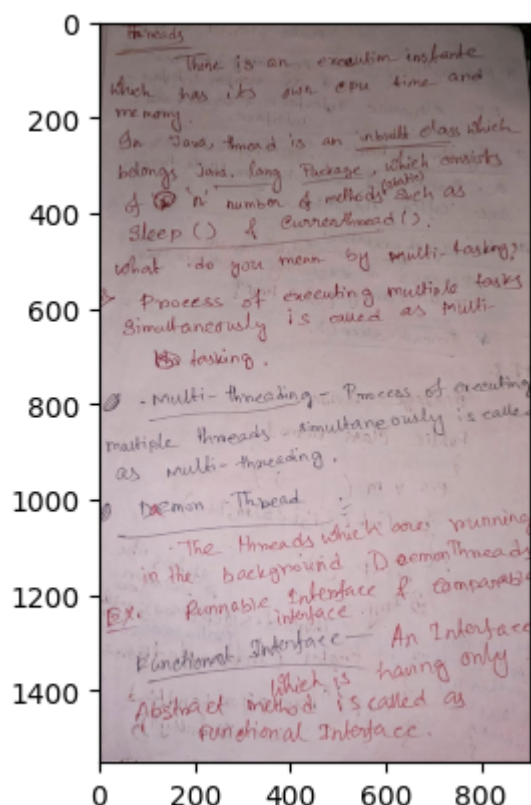 Threads
There is an execution instante
which has its own cpu time and
memory.
In Java, thread is an inbuilt class which
belongs Java. lang Package, which consists
of 'n' number of methods (static) such as
Sleep () & Currenthread ().
what do you mean by multi-tasking?
Process of executing multiple tasks
simultaneously is called as multi-
tasking.
- Multi-threading - Process of executing
multiple threads simultaneously is calle
as multi-threading.
Daemon Thread :
The threads which are running
in the background, DaemonThreads
Ex. Runnable Interface & comparable
interface.
Functional Interface - An Interface
which is having only
Abstract method is called as
Functional Interface.
0
200
400
600
800
1000
1200
1400
0 200 400 600 800